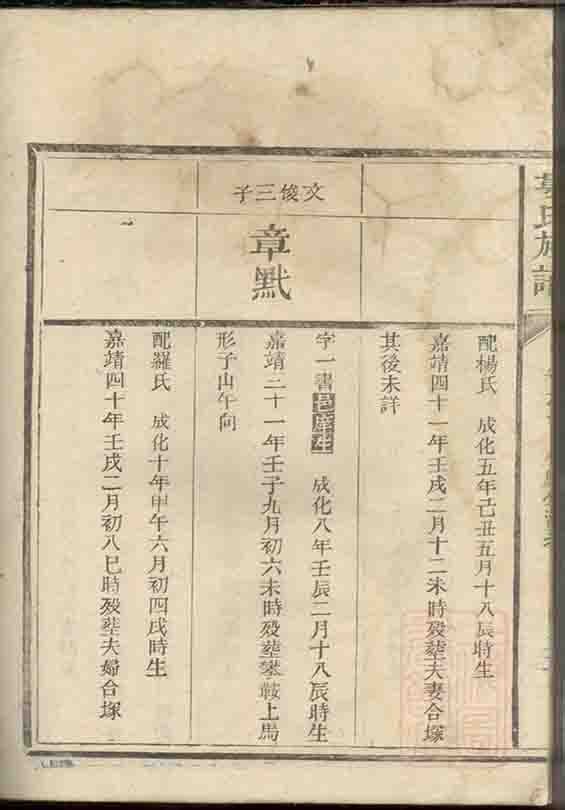 氏族譜
配楊氏 成化五年己丑五月十八辰時生
嘉靖四十一年壬戌二月十二未時殁塟夫妻合塚
其後未詳
文俊三子
章黓
字一書邑庠生 成化八年壬辰二月十八辰時生
嘉靖二十一年壬子九月初六未時殁塟攀鞍上馬
形子山午向
配羅氏 成化十年甲午六月初四戌時生
嘉靖四十年壬戌二月初八巳時殁塟夫婦合塚